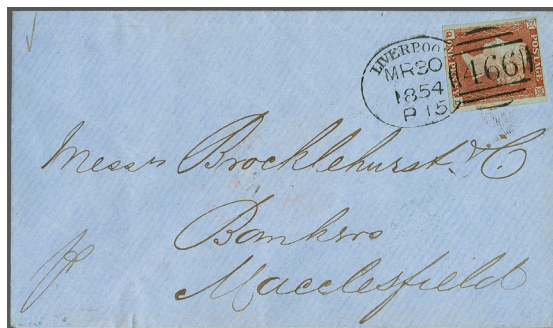 LIVERPOOL
MR30
1854
P 15
466
POSTAGE
ONE PENNY
Messrs Brocklehurst & C
Bankers
Macclesfield